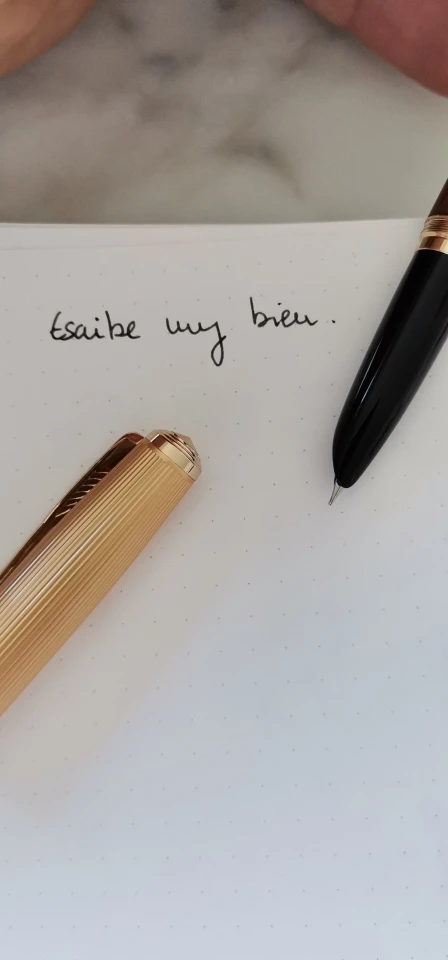 Escribe muy bien.